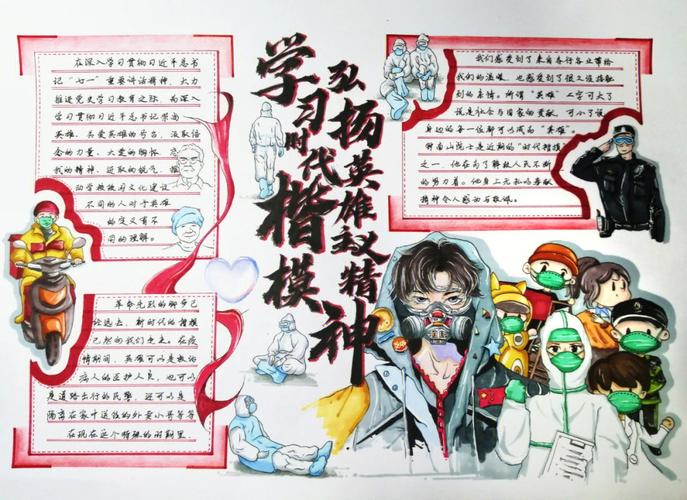 学习时代楷模
弘扬英雄主义精神
在深入学习贯彻习近平总书
记“七一”重要讲话精神,大力
推进党史学习教育之际,为深入
学习贯彻习近平总书记崇尚
英雄、关爱英雄的号召,汲取信
念的力量、大爱的胸怀、忘
我的精神、进取的锐气,推
动学校校园文化建设
不同的人对于英雄
的定义有不
同的理解。
革命先烈的脚步已
经远去,新时代的楷模
已然向我们走来。在疫
情期间,英雄可以是救助
病人的医护人员,也可以
是道路出行的民警,还可以是
隔离在家时送饭的外卖小哥等等
在现在这个特殊的时期里
我们感受到了来自各行各业带给
我们的温暖,也感受到了很久没接触
到的亲情。所谓“英雄”二字可大了
说是社会与国家的贡献,可小了说
身边的每一位都可以成为“英雄”。
钟南山院士是近期的“时代楷模”
之一,他在为了解救人民不断
的努力着。他身上无私的奉献
精神令人感动与敬佩。